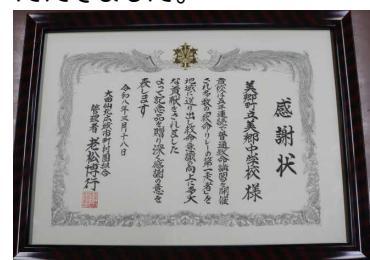 ただきました。
感謝状
美郷町立美郷中学校 様
貴校は五年連続で普通救命講習を開催
され多数の救命リレーの第一走者を
地域に送り出し救命意識の向上に多大
な貢献をされました
よって記念品を贈り深く感謝の意を
表します
令和八年三月十八日
大曲仙北広域市町村圏組合
管理者 老松博行